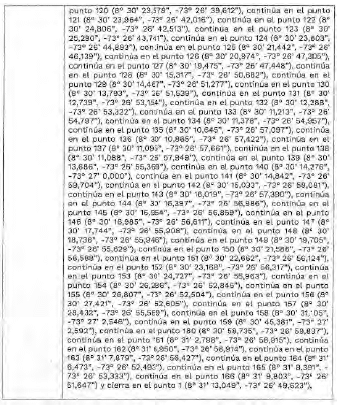 punto 120 (8° 30' 23,578", -73° 26' 39,612"), continúa en el punto
121 (8° 30' 23,964", -73° 26' 42,016"), continúa en el punto 122 (8°
30' 24,806", -73° 26' 42,513"), continúa en el punto 123 (8° 30'
25,290", -73° 26' 43,741"), continúa en el punto 124 (8° 30' 23,603",
-73° 26' 44,893"), continúa en el punto 125 (8° 30' 21,442", -73° 26'
46,139"), continúa en el punto 126 (8° 30' 20,974", -73° 26' 47,305"),
continúa en el punto 127 (8° 30' 19,475", -73° 26' 47,448"), continúa
en el punto 128 (8° 30' 15,317", -73° 26' 50,682"), continúa en el
punto 129 (8° 30' 14,467", -73° 26' 51,277"), continúa en el punto 130
(8° 30' 13,793", -73° 26' 51,539"), continúa en el punto 131 (8° 30'
12,739", -73° 26' 53,154"), continúa en el punto 132 (8° 30' 12,388",
-73° 26' 53,332"), continúa en el punto 133 (8° 30' 11,213", -73° 26'
54,797"), continúa en el punto 134 (8° 30' 11,378", -73° 26' 54,957"),
continúa en el punto 135 (8° 30' 10,646", -73° 26' 57,097"), continúa
en el punto 136 (8° 30' 10,865", -73° 26' 57,422"), continúa en el
punto 137 (8° 30' 11,095", -73° 26' 57,661"), continúa en el punto 138
(8° 30' 11,088", -73° 26' 57,848"), continúa en el punto 139 (8° 30'
13,686", -73° 26' 55,369"), continúa en el punto 140 (8° 30' 14,376",
-73° 27' 0,000"), continúa en el punto 141 (8° 30' 14,842", -73° 26'
59,704"), continúa en el punto 142 (8° 30' 15,033", -73° 26' 58,081"),
continúa en el punto 143 (8° 30' 16,019", -73° 26' 57,390"), continúa
en el punto 144 (8° 30' 16,397", -73° 26' 56,986"), continúa en el
punto 145 (8° 30' 16,954", -73° 26' 56,859"), continúa en el punto
146 (8° 30' 16,985", -73° 26' 56,611"), continúa en el punto 147 (8°
30' 17,744", -73° 26' 55,908"), continúa en el punto 148 (8° 30'
18,736", -73° 26' 55,846"), continúa en el punto 149 (8° 30' 19,705",
-73° 26' 55,629"), continúa en el punto 150 (8° 30' 21,586", -73° 26'
56,598"), continúa en el punto 151 (8° 30' 22,662", -73° 26' 56,124"),
continúa en el punto 152 (8° 30' 23,168", -73° 26' 56,317"), continúa
en el punto 153 (8° 30' 24,727", -73° 26' 55,963"), continúa en el
punto 154 (8° 30' 26,286", -73° 26' 52,845"), continúa en el punto
155 (8° 30' 26,807", -73° 26' 52,504"), continúa en el punto 156 (8°
30' 27,421", -73° 26' 52,605"), continúa en el punto 157 (8° 30'
28,432", -73° 26' 55,559"), continúa en el punto 158 (8° 30' 31,105",
-73° 27' 2,546"), continúa en el punto 159 (8° 30' 45,381", -73° 27'
2,592"), continúa en el punto 160 (8° 30' 56,735", -73° 26' 59,837"),
continúa en el punto 161 (8° 31' 2,798", -73° 26' 58,915"), continúa
en el punto 162 (8° 31' 6,950", -73° 26' 56,914"), continúa en el punto
163 (8° 31' 7,879", -73° 26' 56,427"), continúa en el punto 164 (8° 31'
8,473", -73° 26' 52,493"), continúa en el punto 165 (8° 31' 8,391", -
73° 26' 53,333"), continúa en el punto 166 (8° 31' 9,803", -73° 26'
51,647") y cierra en el punto 1 (8° 31' 13,049", -73° 26' 49,623"),